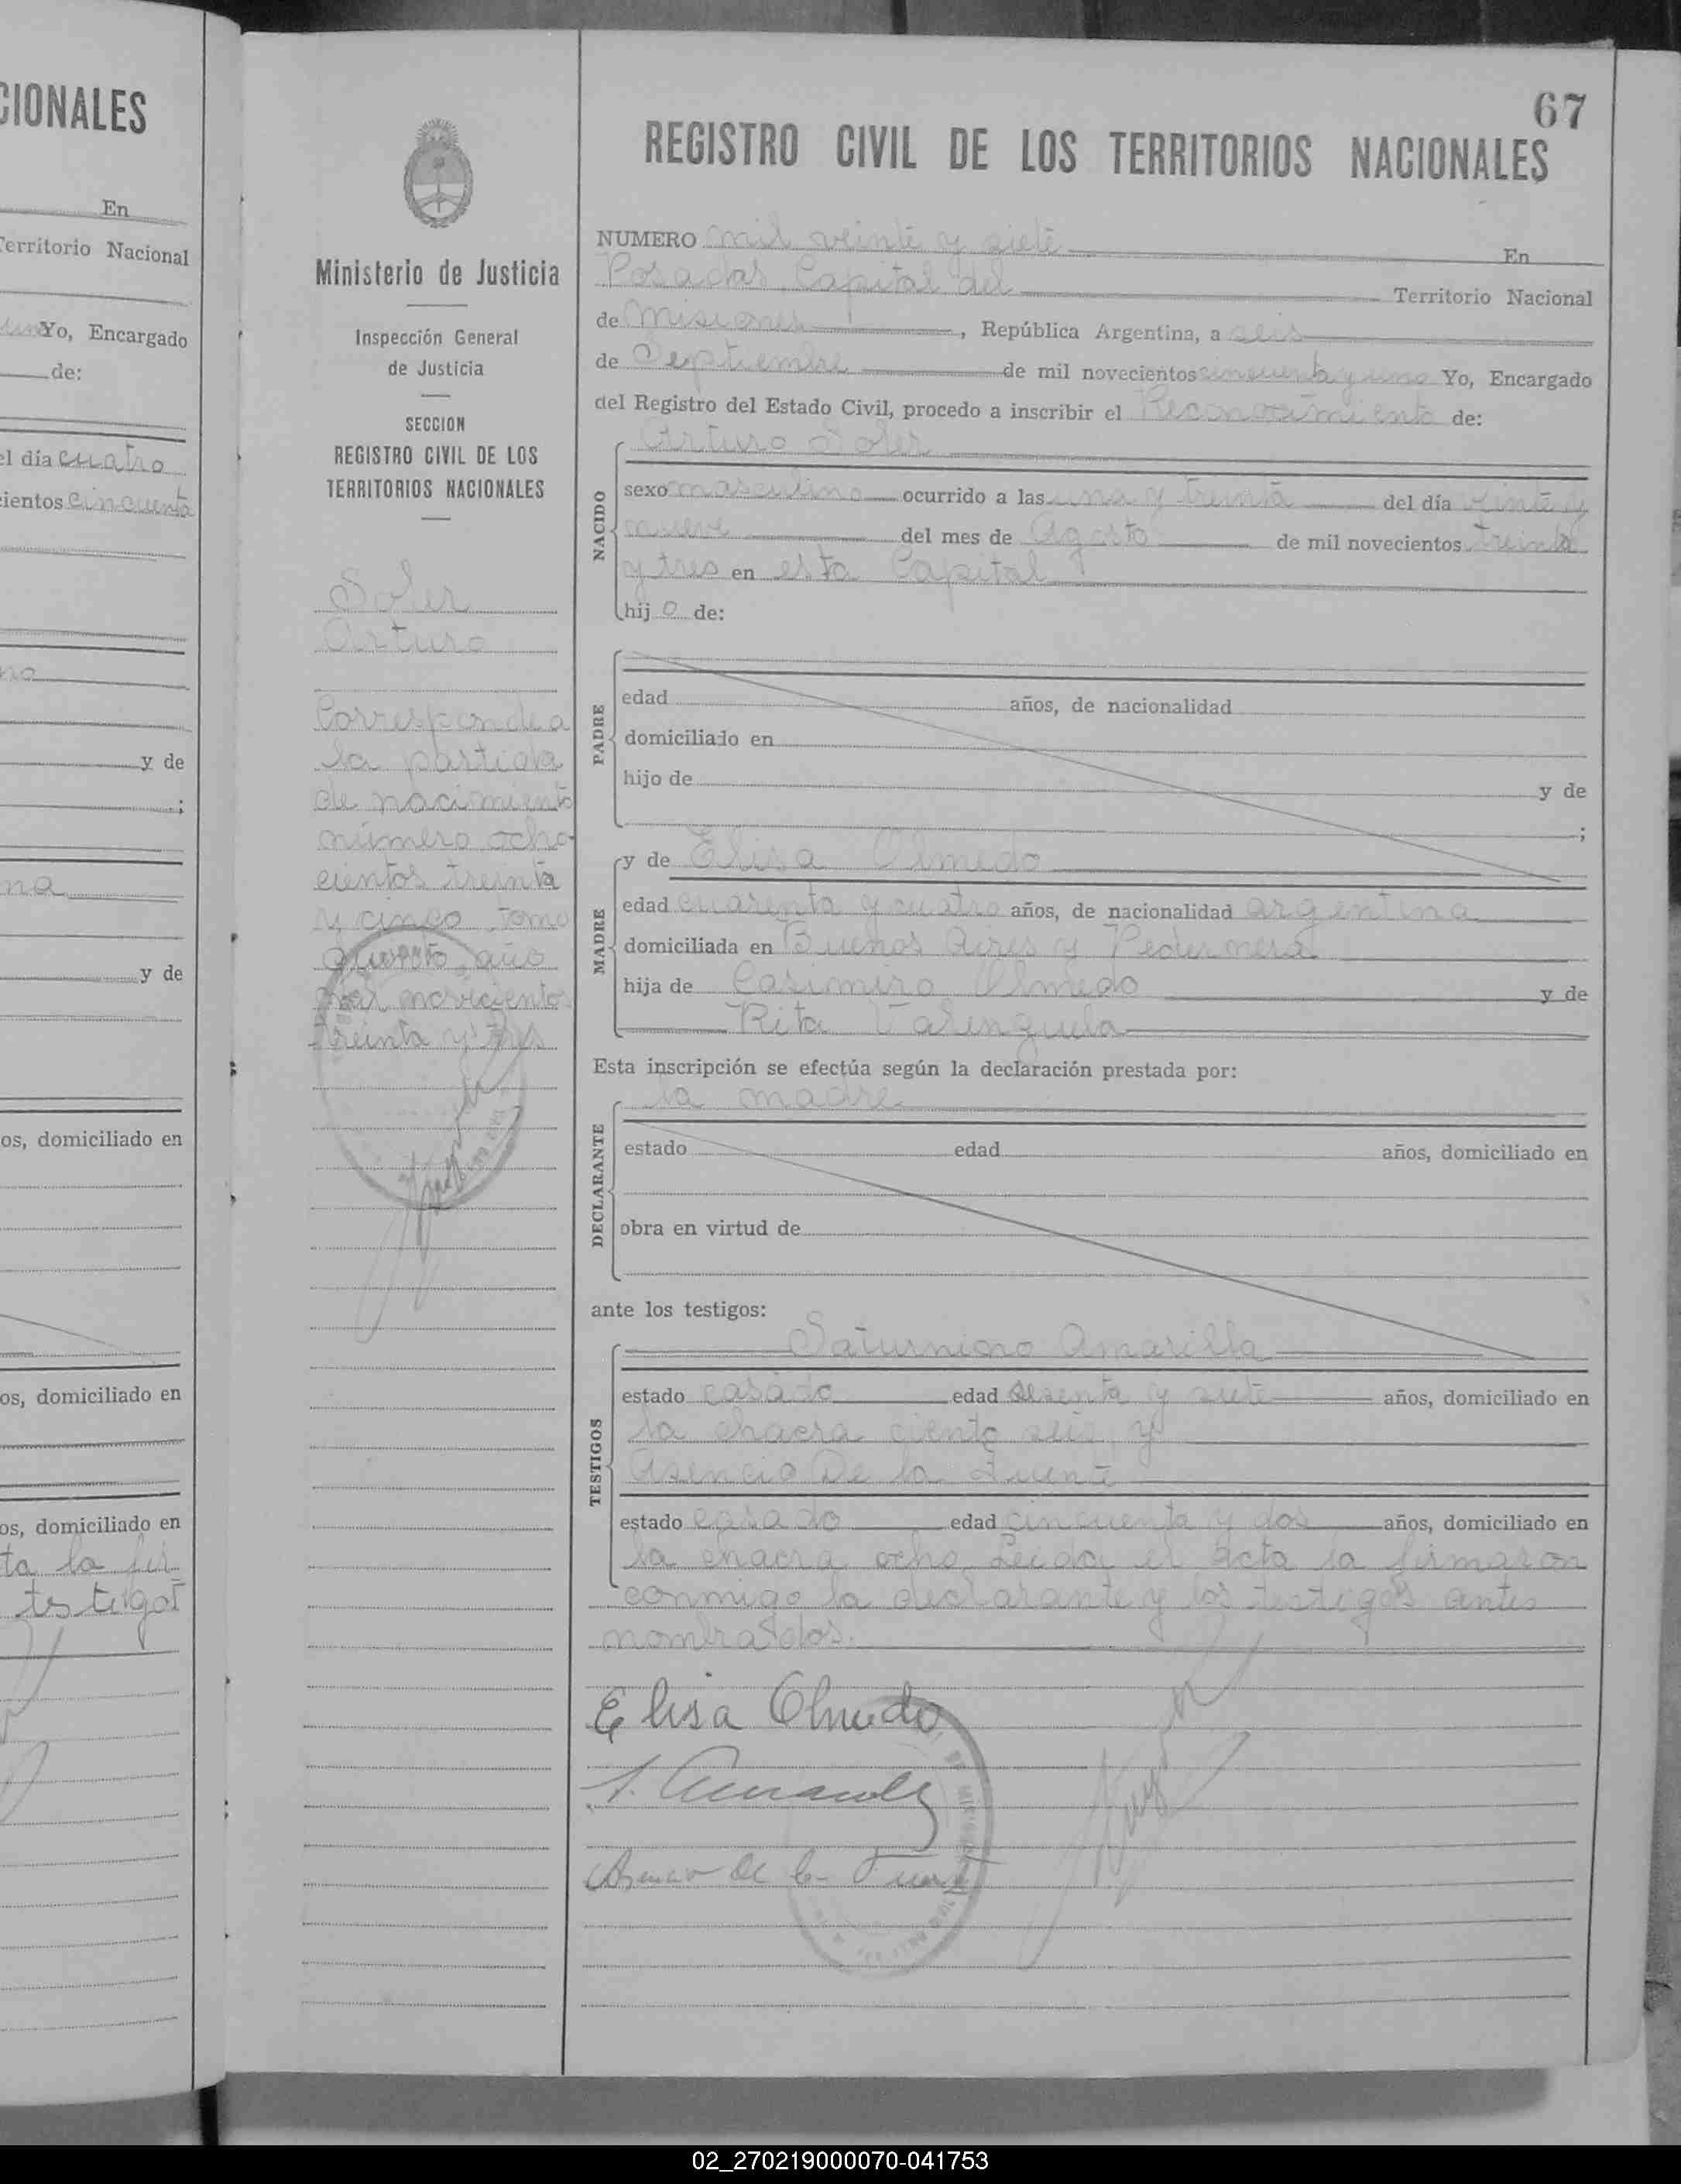 CIONALES
En
Territorio Nacional
Yo, Encargado
de:
el día cuatro
cientos cincuenta
no
y de
;
na
y de
os, domiciliado en
os, domiciliado en
os, domiciliado en
ta la fir
testigos
Ministerio de Justicia
Inspección General
de Justicia
SECCION
REGISTRO CIVIL DE LOS
TERRITORIOS NACIONALES
Soler
Arturo
Corresponde a
la partida
de nacimiento
número ocho
cientos treinta
y cinco, tomo
año
mil novecientos
treinta y tres
67
REGISTRO CIVIL DE LOS TERRITORIOS NACIONALES
NUMERO mil veinte y siete En
Posadas, Capital del Territorio Nacional
de Misiones, República Argentina, a seis
de Septiembre de mil novecientos cincuenta y uno Yo, Encargado
del Registro del Estado Civil, procedo a inscribir el Reconocimiento de:
Arturo Soler
NACIDO
sexo masculino ocurrido a las una y treinta del día veinte y
nueve del mes de Agosto de mil novecientos treinta
y tres en esta Capital
hijo de:
PADRE
edad años, de nacionalidad
domiciliado en
hijo de y de
;
MADRE
y de Elisa Olmedo
edad cuarenta y cuatro años, de nacionalidad argentina
domiciliada en Buenos Aires y Pedernera
hija de Casimiro Olmedo y de
Rita Valenzuela
Esta inscripción se efectúa según la declaración prestada por:
la madre
DECLARANTE
estado edad años, domiciliado en
obra en virtud de
ante los testigos:
TESTIGOS
Saturnino Amarilla
estado casado edad sesenta y siete años, domiciliado en
la chacra ciento seis y
Asencio De la Fuente
estado casado edad cincuenta y dos años, domiciliado en
la chacra ocho. Leida el acta la firmaron
conmigo la declarante y los testigos antes
nombrados.
Elisa Olmedo
S. Amarilla
Asencio de la Fuente
02_270219000070-041753